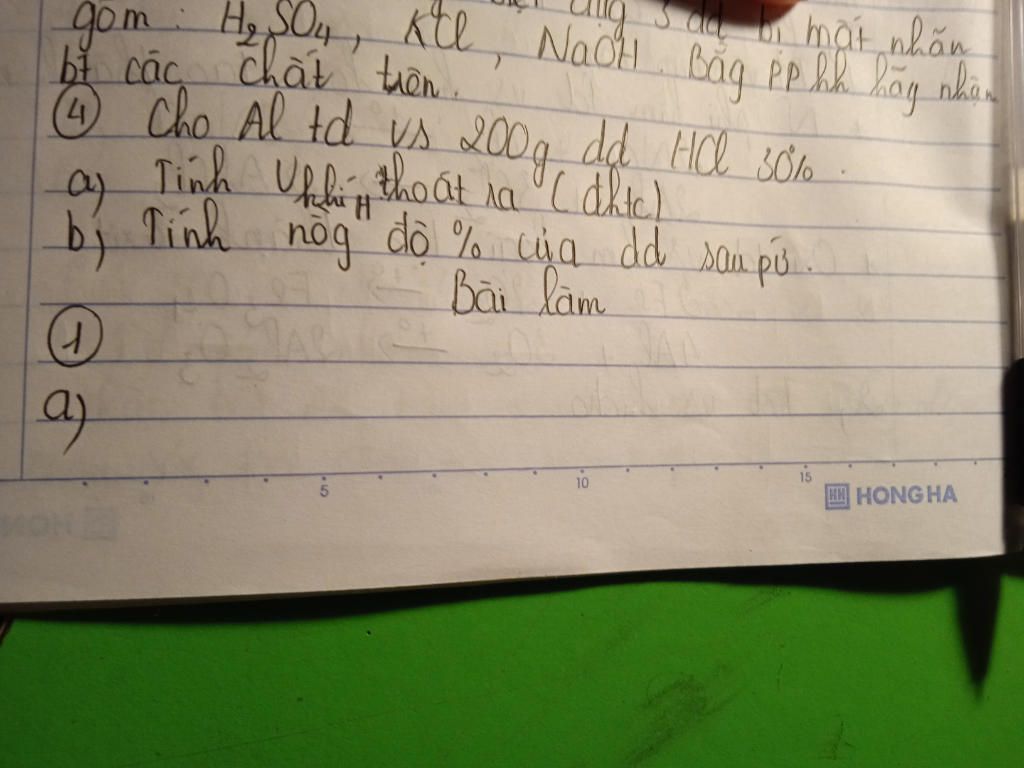 dựg 3 dd bị mất nhãn
gồm : H₂SO₄, KCl, NaOH. Bằg pp hh hãy nhận
bt các chất trên.
④ Cho Al td vs 200g dd HCl 30%.
a) Tính Vkhí H thoát ra (đktc)
b) Tính nồg độ % của dd sau pứ.
Bài làm
①
a)
5 10 15
HH HONG HA